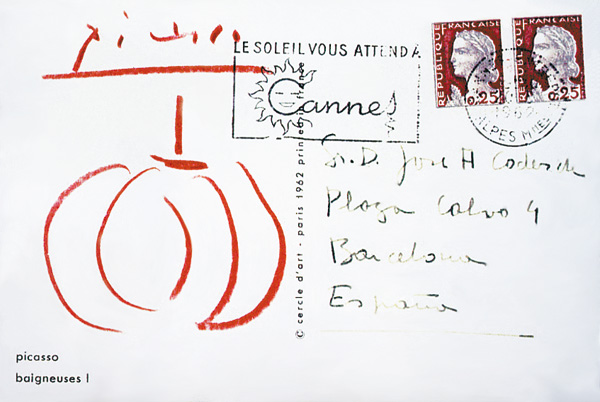 picasso
LE SOLEIL VOUS ATTEND A
Cannes
REPUBLIQUE FRANÇAISE
0,25
REPUBLIQUE FRANÇAISE
0,25
1962
ALPES MMES
Sr. D. Jose A Coderch
Plaza Calvo 4
Barcelona
España
© cercle d'art - paris 1962 printed in france
picasso
baigneuses I